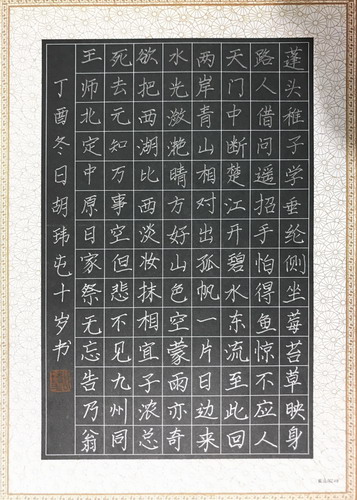 蓬头稚子学垂纶侧坐莓苔草映身
路人借问遥招手怕得鱼惊不应人
天门中断楚江开碧水东流至此回
两岸青山相对出孤帆一片日边来
水光潋滟晴方好山色空蒙雨亦奇
欲把西湖比西淡妆抹相宜子浓总
死去元知万事空但悲不见九州同
王师北定中原日家祭无忘告乃翁
丁酉冬日胡玮屯十岁书